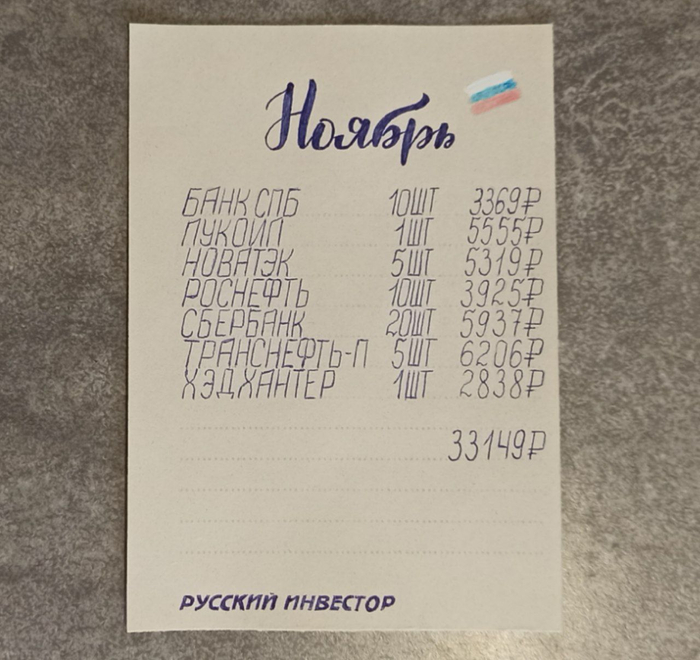 Ноябрь
БАНК СПБ 10ШТ 3369₽
ЛУКОЙЛ 1ШТ 5555₽
НОВАТЭК 5ШТ 5319₽
РОСНЕФТЬ 10ШТ 3925₽
СБЕРБАНК 20ШТ 5937₽
ТРАНСНЕФТЬ-П 5ШТ 6206₽
ХЭДХАНТЕР 1ШТ 2838₽
33149₽
РУССКИЙ ИНВЕСТОР